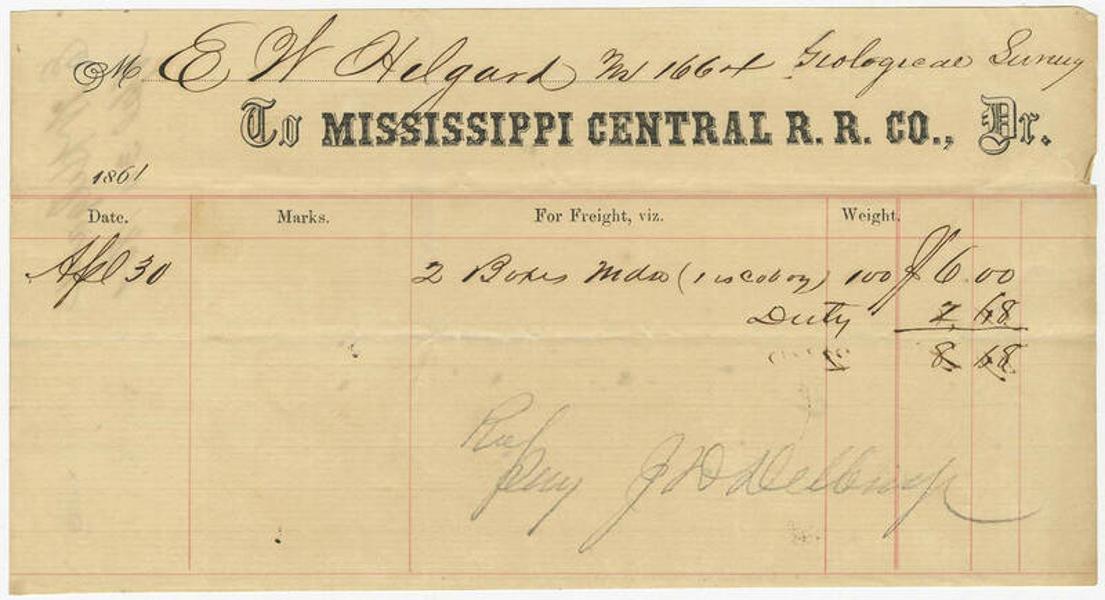 M. E W Hilgard No 1664 Geological Survey
To MISSISSIPPI CENTRAL R. R. CO., Dr.
1861
Date. Marks. For Freight, viz. Weight.
Apl 30 2 Boxes Mdse 100 $ 6.00
Duty 2 68
$ 8 68
Recd
Pay J D